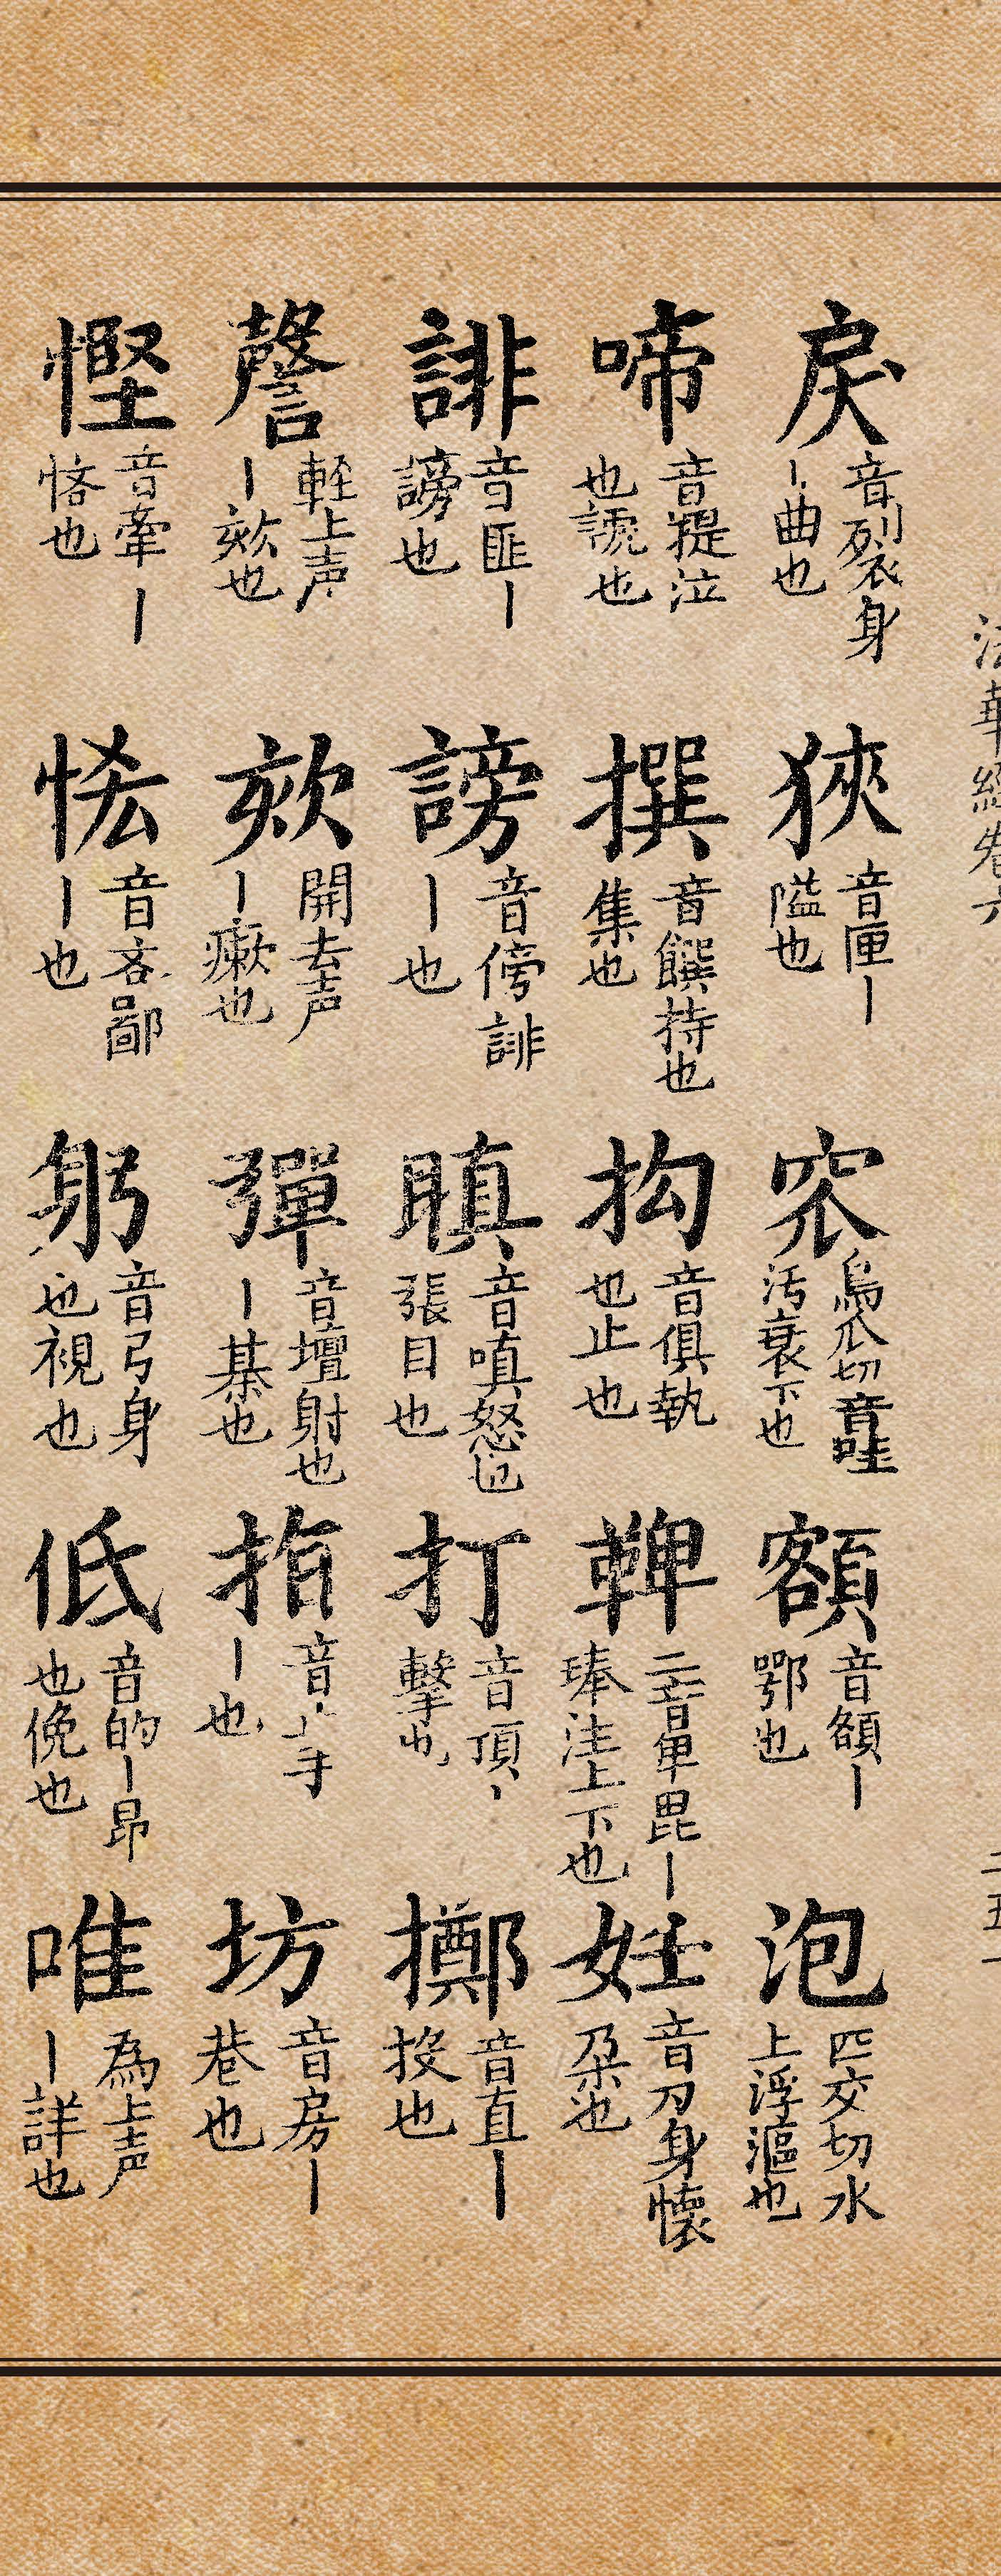 法華經卷六
二五一
戾 音裂身丨曲也
狹 音匣丨隘也
窊 烏瓜切音哇汚衺下也
額 音頟丨鄂也
泡 匹交切水上浮漚也
啼 音提泣也號也
撰 音饌持也集也
拘 音俱執也止也
鞞 二音卑毘丨琫法上下也
妊 音刃身懷朶也
誹 音匪丨謗也
謗 音傍誹丨也
瞋 音嗔怒也張目也
打 音頂丨擊也
擲 音直丨投也
謦 輕上声丨欬也
欬 開去声丨瘷也
彈 音壇射也丨棊也
指 音手丨也
坊 音房丨巷也
慳 音牽丨悋也
悋 音吝鄙丨也
躬 音弓身也視也
低 音的丨昂也俛也
唯 為上声丨詳也